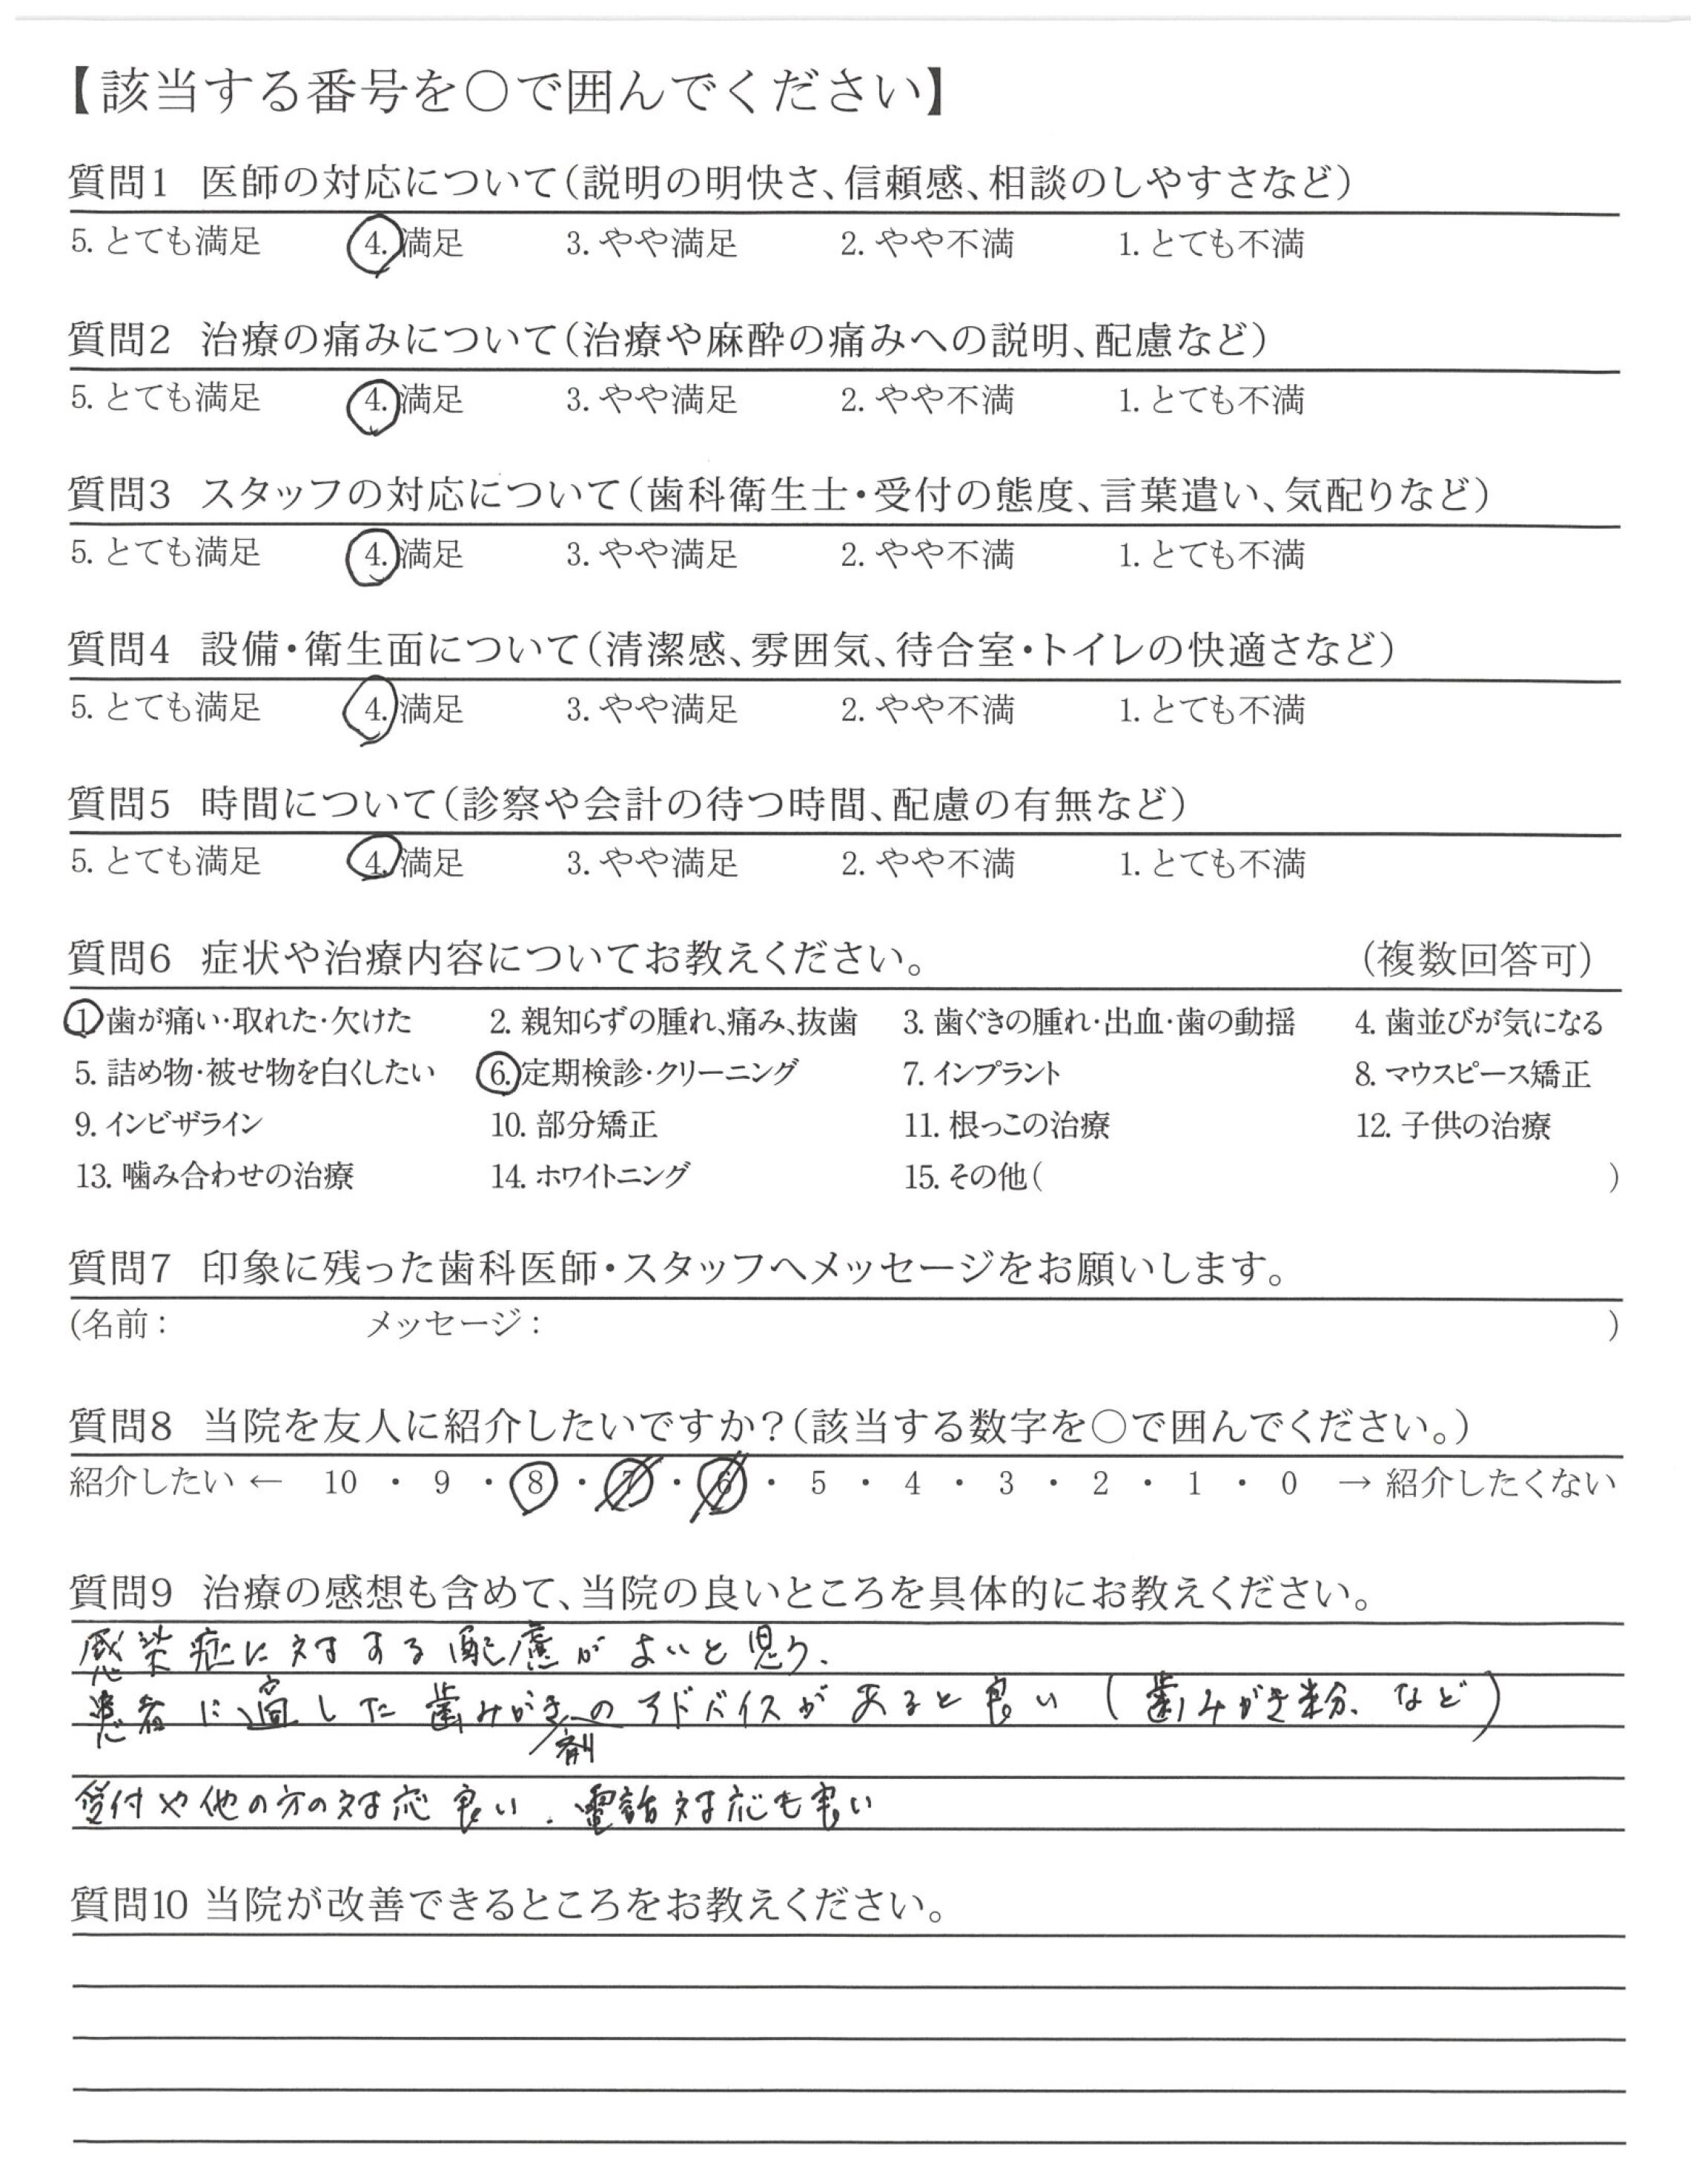 【該当する番号を○で囲んでください】
質問1 医師の対応について(説明の明快さ、信頼感、相談のしやすさなど)
5. とても満足 4. 満足 3. やや満足 2. やや不満 1. とても不満
質問2 治療の痛みについて(治療や麻酔の痛みへの説明、配慮など)
5. とても満足 4. 満足 3. やや満足 2. やや不満 1. とても不満
質問3 スタッフの対応について(歯科衛生士・受付の態度、言葉遣い、気配りなど)
5. とても満足 4. 満足 3. やや満足 2. やや不満 1. とても不満
質問4 設備・衛生面について(清潔感、雰囲気、待合室・トイレの快適さなど)
5. とても満足 4. 満足 3. やや満足 2. やや不満 1. とても不満
質問5 時間について(診察や会計の待つ時間、配慮の有無など)
5. とても満足 4. 満足 3. やや満足 2. やや不満 1. とても不満
質問6 症状や治療内容についてお教えください。 (複数回答可)
1 歯が痛い・取れた・欠けた 2. 親知らずの腫れ、痛み、抜歯 3. 歯ぐきの腫れ・出血・歯の動揺 4. 歯並びが気になる
5. 詰め物・被せ物を白くしたい 6. 定期検診・クリーニング 7. インプラント 8. マウスピース矯正
9. インビザライン 10. 部分矯正 11. 根っこの治療 12. 子供の治療
13. 噛み合わせの治療 14. ホワイトニング 15. その他( )
質問7 印象に残った歯科医師・スタッフへメッセージをお願いします。
(名前： メッセージ： )
質問8 当院を友人に紹介したいですか？(該当する数字を○で囲んでください。)
紹介したい ← 10 ・ 9 ・ 8 ・ 7 ・ 6 ・ 5 ・ 4 ・ 3 ・ 2 ・ 1 ・ 0 → 紹介したくない
質問9 治療の感想も含めて、当院の良いところを具体的にお教えください。
感染症に対する配慮がよいと思う.
患者に適した歯みがき剤のアドバイスがあると良い(歯みがき粉、など)
受付や他の方の対応良い. 電話対応も良い
質問10 当院が改善できるところをお教えください。